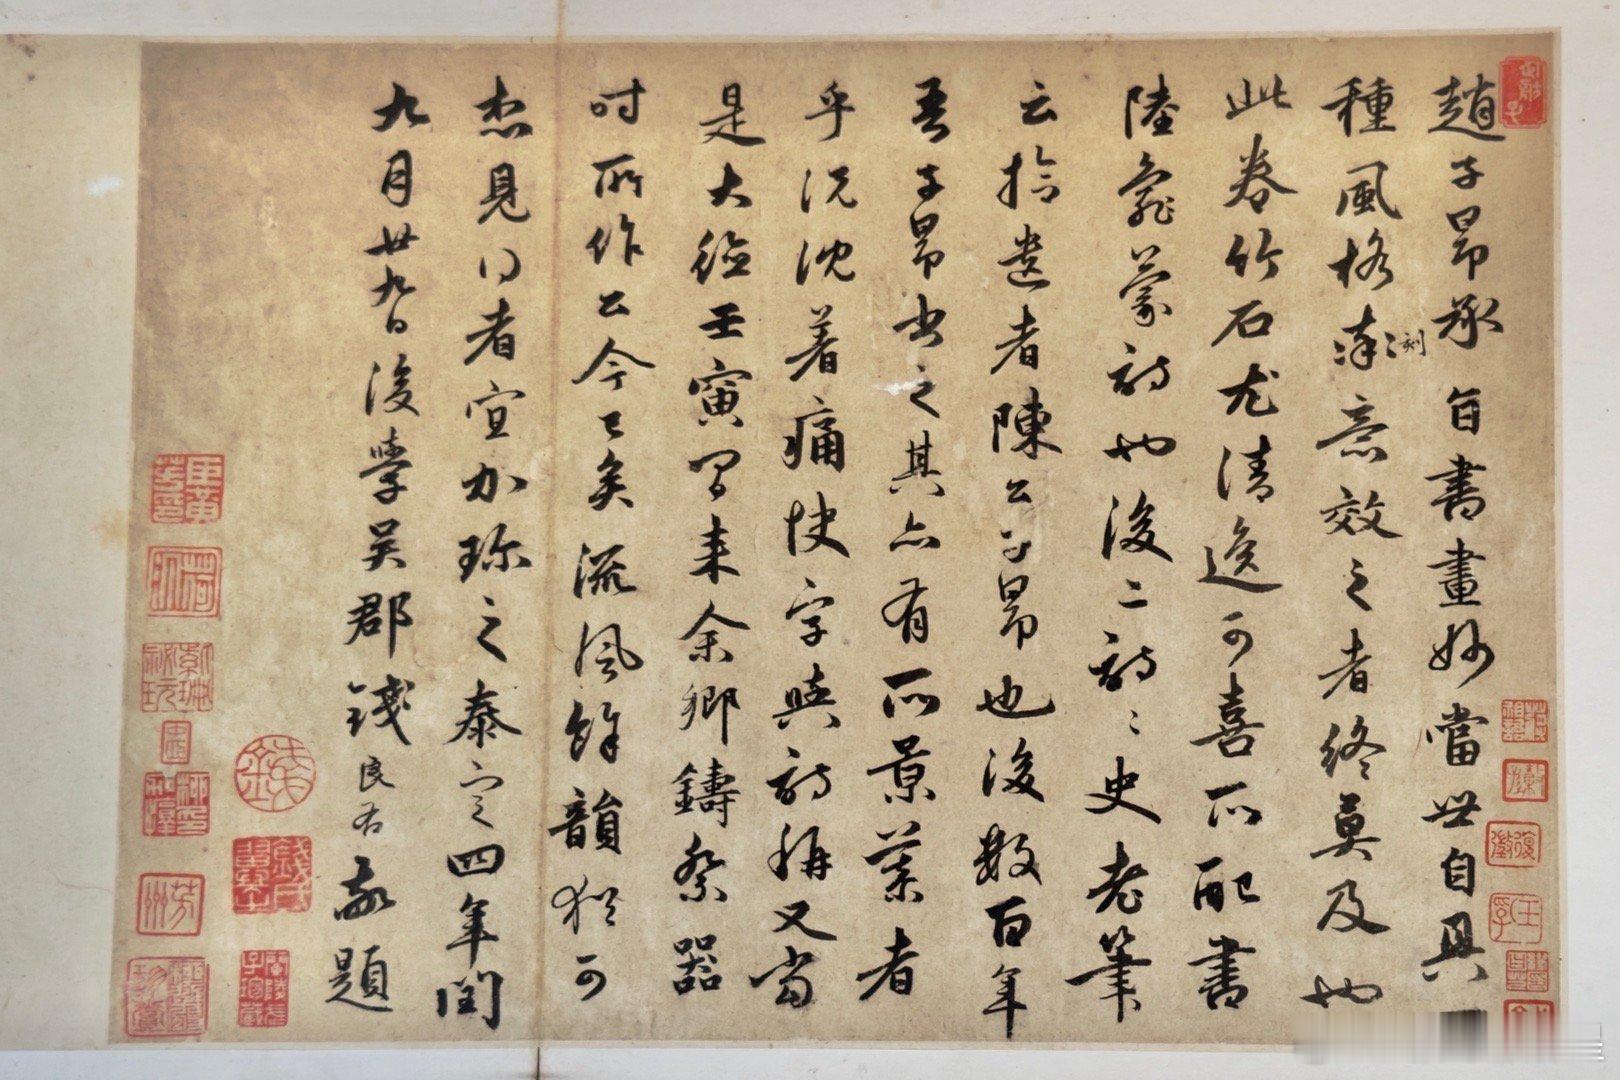 趙子昂承旨書畫妙當世自具
種風格刻意效之者終莫及也
此卷竹石尤清逸可喜所配書
陸龜蒙詩也後二詩〻史老筆
云拾遺者陳公子昂也後數百年
吾子昂書之其亦有所景慕者
乎況沈着痛快字與詩稱又當
是大德壬寅間來余鄉鑄祭器
时所作公今已矣流風餘韻猶可
想見得者宜加珍之泰定四年閏
九月廿九日後學吳郡錢良右敬題